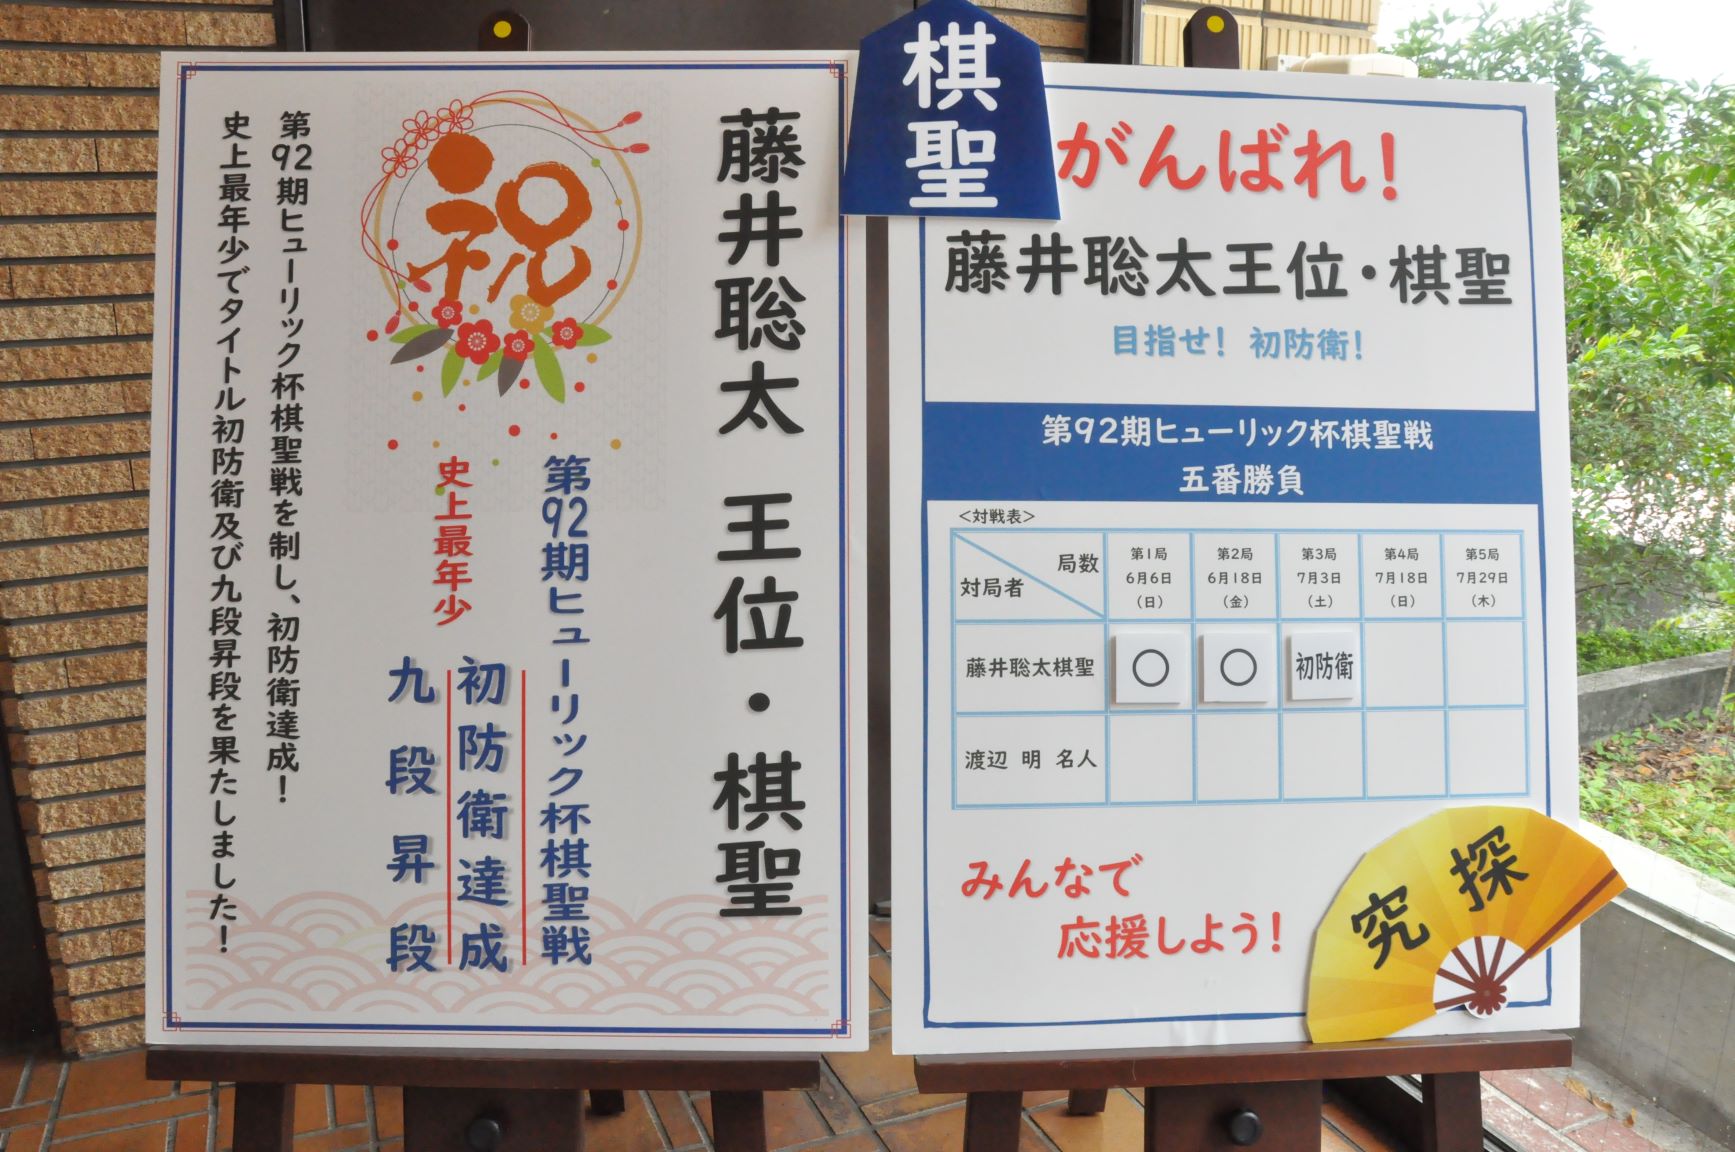 祝
藤井聡太 王位・棋聖
第92期ヒューリック杯棋聖戦
史上最年少
初防衛達成
九段昇段
第92期ヒューリック杯棋聖戦を制し、初防衛達成！
史上最年少でタイトル初防衛及び九段昇段を果たしました！
棋聖
がんばれ！
藤井聡太王位・棋聖
目指せ！ 初防衛！
第92期ヒューリック杯棋聖戦
五番勝負
＜対戦表＞
局数
対局者
第1局 6月6日 （日）
第2局 6月18日 （金）
第3局 7月3日 （土）
第4局 7月18日 （日）
第5局 7月29日 （木）
藤井聡太棋聖 ○ ○ 初防衛
渡辺 明 名人
みんなで
応援しよう！
探究